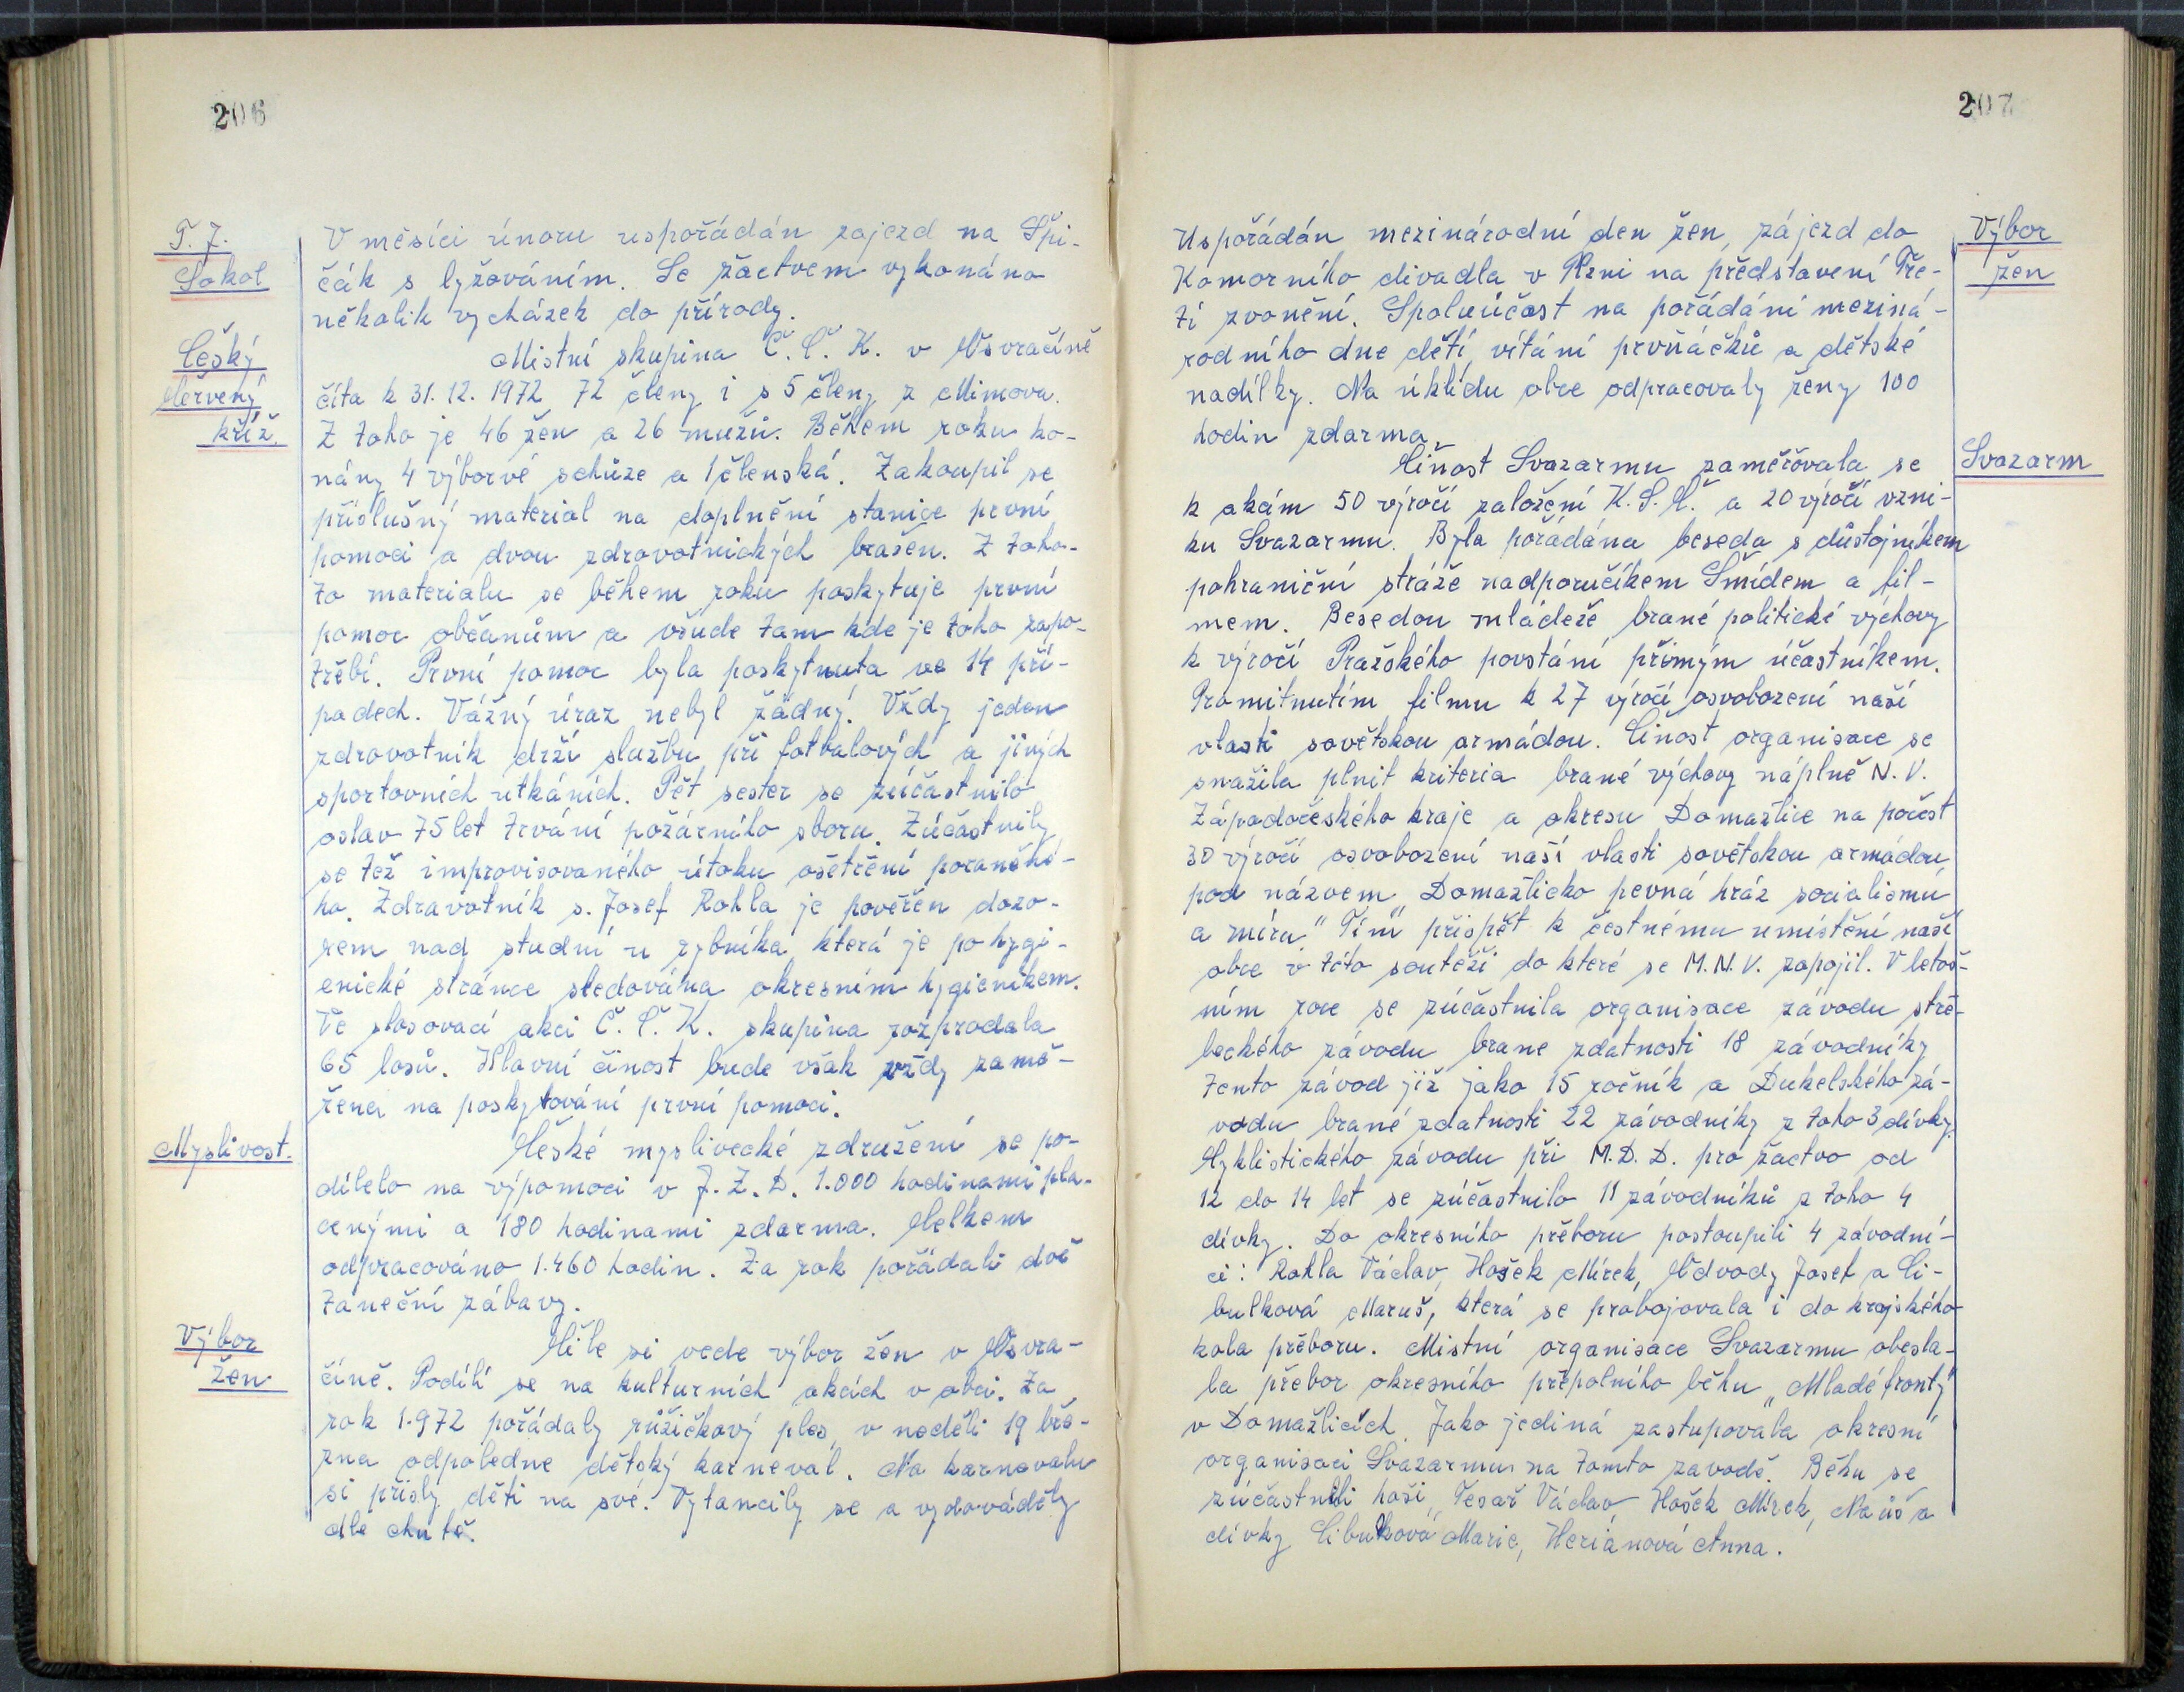 206
T. J.
Sokol
V měsíci únoru uspořádán zajezd na Špi-
čák s lyžováním. Se žactvem vykonáno
několik vycházek do přírody.
Český
červený
kříž.
Mistní skupina Č. Č. K. v Osvračíně
číta k 31. 12. 1972 72 členy i s 5 členy z Mimova.
Z toho je 46 žen a 26 mužů. Během roku ko-
nány 4 výborvé schůze a 1 členská. Zakoupil se
příslušný material na doplnění stanice první
pomoci a dvou zdravotnických brašen. Z toho-
to materialu se během roku poskytuje první
pomoc občanům a všude tam kde je toho zapo-
třebí. První pomoc byla poskytnuta ve 14 pří-
padech. Vážný úraz nebyl žádný. Vždy jeden
zdravotník drží službu při fotbalových a jiných
sportovních utkáních. Pět sester se zúčastnilo
oslav 75 let trvání požárního sboru. Zúčastnily
se též improvisovaného útoku ošetření poraněné-
ho. Zdravotník s. Josef Rohla je pověřen dozo-
rem nad studní u rybníka která je po hygi-
enické stránce sledována okresním hygienikem.
Ve slosovací akci Č. Č. K. skupina rozprodala
65 losů. Hlavní činost bude však vždy zamě-
řena na poskytování první pomoci.
Myslivost.
České myslivecké združení se po-
dílelo na výpomoci v J. Z. D. 1.000 hodinami pla-
cenými a 180 hodinami zdarma. Celkem
odpracováno 1.460 hodin. Za rok pořádali dvě
taneční zábavy.
Výbor
žen
Čile si vede výbor žen v Osvra-
číně. Podílí se na kulturních akcích v obci. Za
rok 1.972 pořádaly růžičkový ples, v neděli 19 bře-
zna odpoledne dětský karneval. Na karnevalu
si přišly děti na své. Vytancily se a vydováděly
dle chutě.
207
Výbor
žen
Uspořádán mezinárodní den žen, zájezd do
Komorního divadla v Plzni na představení Tře-
tí zvonění. Spoluúčast na pořádání meziná-
rodního dne dětí, vítání prvňáčků a dětské
nadílky. Na úklidu obce odpracovaly ženy 100
hodin zdarma.
Svazarm
Činost Svazarmu zaměřovala se
k akám 50 výročí založení K. S. Č. a 20 výročí vzni-
ku Svazarmu. Byla pořádána beseda s důstojníkem
pohraniční stráže nadporučíkem Šmídem a fil-
mem. Besedou mládeže brané politické výchovy
k výročí Pražského povstání přímým účastníkem.
Promitnutím filmu k 27 výročí osvobození naší
vlasti sovětskou armádou. Činost organisace se
snažila plnit kriteria brané výchovy náplně N. V.
Západočeského kraje a okresu Domažlice na počest
30 výročí osvobození naší vlasti sovětskou armádou
pod názvem „Domažlicko pevná hráz socialismu
a míru" Tím přispět k čestnému umístění naší
obce v této soutěži do které se M. N. V. zapojil. V letoš-
ním roce se zúčastnila organisace závodu stře-
leckého závodu brane zdatnosti 18 závodníky
tento závod již jako 15 ročník a Dukelského zá-
vodu brané zdatnosti 22 závodníky z toho 3 dívky.
Cyklistického závodu při M. D. D. pro žactvo od
12 do 14 let se zúčastnilo 11 závodníků z toho 4
dívky. Do okresního přeboru postoupili 4 závodní-
ci: Rohla Václav, Hošek Mírek, Odvody Josef a Ci-
bulková Maruš, která se probojovala i do krajského
kola přeboru. Mistní organisace Svazarmu obesla-
la přebor okresního přepolního běhu „Mladé fronty"
v Domažlicích. Jako jediná zastupovala okresní
organisaci Svazarmu na tomto zavodě. Běhu se
zúčastnili hoši, Tesař Václav Hošek Mírek, Nauš a
dívky Cibulková Marie, Heriánová Anna.